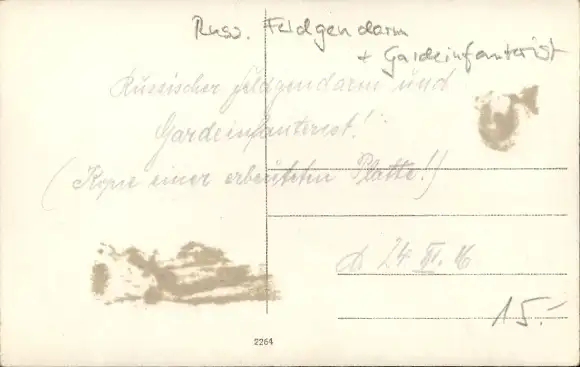 Russ. Feldgendarm
+ Gardeinfanterist
Russischer Feldgendarm und
Gardeinfanterist!
(Kopie einer erbeuteten Platte!)
24. III. 16
15.-
2264